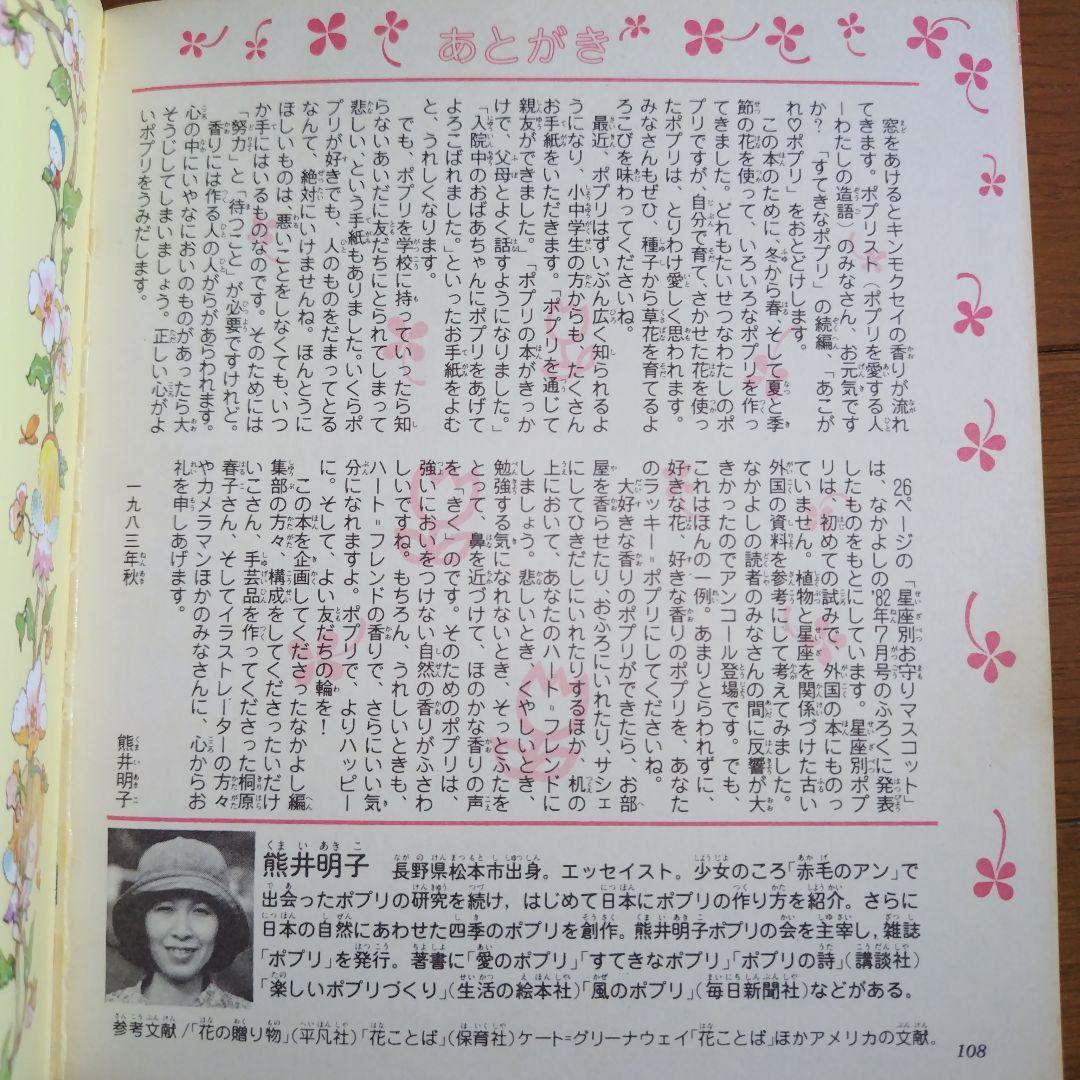 あとがき
窓をあけるとキンモクセイの香りが流れ
てきます。ポプリスト(ポプリを愛する人
ーわたしの造語)のみなさん、お元気です
か?　「すてきなポプリ」の続編、「あこが
れ♡ポプリ」をおとどけします。
この本のために、冬から春、そして夏と季
節の花を使って、いろいろなポプリを作っ
てきました。どれもたいせつなわたしのポ
プリですが、自分で育て、さかせた花を使っ
たポプリは、とりわけ愛しく思われます。
みなさんもぜひ、種子から草花を育てるよ
ろこびを味わってくださいね。
最近、ポプリはずいぶん広く知られるよ
うになり、小中学生の方からも、たくさん
お手紙をいただきます。「ポプリを通じて
親友ができました。」「ポプリの本がきっか
けで、父母とよく話すようになりました。」
「入院中のおばあちゃんにポプリをあげて
よろこばれました。」といったお手紙をよむ
と、うれしくなります。
でも、ポプリを学校に持っていったら知
らないあいだに友だちにとられてしまって
悲しい、という手紙もありました。いくらポ
プリが好きでも、人のものをだまってとる
なんて、絶対にいけませんね。ほんとうに
ほしいものは、悪いことをしなくても、いつ
か手にはいるものなのです。そのためには
「努力」と「待つこと」が必要ですけれど。
香りには作る人の人がらがあらわれます。
心の中にいやなにおいのものがあったら大
そうじしてしまいましょう。正しい心がよ
いポプリをうみだします。
26ページの「星座別お守りマスコット」
は、なかよしの'82年7月号のふろくに発表
したものをもとにしています。星座別ポプ
リは、初めての試みで、外国の本にものっ
ていません。植物と星座を関係づけた古い
外国の資料を参考にして考えてみました。
なかよしの読者のみなさんの間に反響が大
きかったのでアンコール登場です。でも、
これはほんの一例。あまりとらわれずに、
好きな花、好きな香りのポプリを、あなた
のラッキー=ポプリにしてくださいね。
大好きな香りのポプリができたら、お部
屋を香らせたり、おふろにいれたり、サシェ
にしてひきだしにいれたりするほか、机の
上において、あなたのハート=フレンドに
しましょう。悲しいとき、くやしいとき、
勉強する気になれないとき、そっとふたを
とって、鼻を近づけて、ほのかな香りの声
を〝きく〟のです。そのためのポプリは、
強いにおいをつけない自然の香りがふさわ
しいですね。もちろん、うれしいときも、
ハート=フレンドの香りで、さらにいい気
分になれますよ。ポプリで、よりハッピー
に。そして、よい友だちの輪を!
この本を企画してくださったなかよし編
集部の方々、構成をしてくださったいだけ
いこさん、手芸品を作ってくださった桐原
春子さん、そしてイラストレーターの方々
やカメラマンほかのみなさんに、心からお
礼を申しあげます。
一九八三年秋
熊井明子
熊井明子　長野県松本市出身。エッセイスト。少女のころ「赤毛のアン」で
出会ったポプリの研究を続け，はじめて日本にポプリの作り方を紹介。さらに
日本の自然にあわせた四季のポプリを創作。熊井明子ポプリの会を主宰し，雑誌
「ポプリ」を発行。著書に「愛のポプリ」「すてきなポプリ」「ポプリの詩」(講談社)
「楽しいポプリづくり」(生活の絵本社)「風のポプリ」(毎日新聞社)などがある。
参考文献/「花の贈り物」(平凡社)「花ことば」(保育社)ケート=グリーナウェイ「花ことば」ほかアメリカの文献。
108